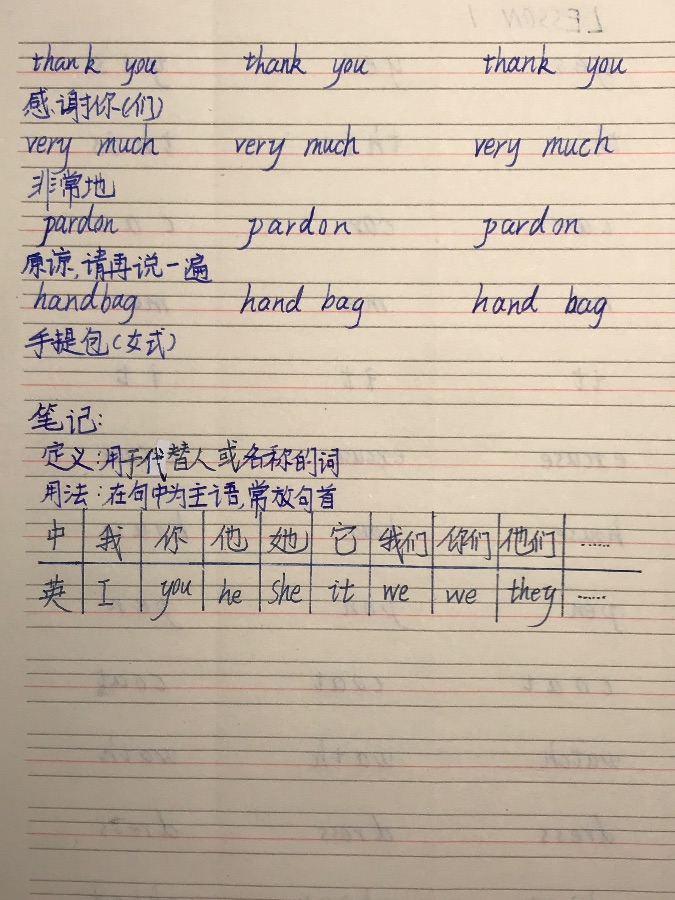 thank you thank you thank you
感谢你(们)
very much very much very much
非常地
pardon pardon pardon
原谅,请再说一遍
handbag hand bag hand bag
手提包(女式)
笔记:
定义:用于代替人或名称的词
用法:在句中为主语,常放句首
中 我 你 他 她 它 我们 你们 他们 ……
英 I you he she it we we they ……